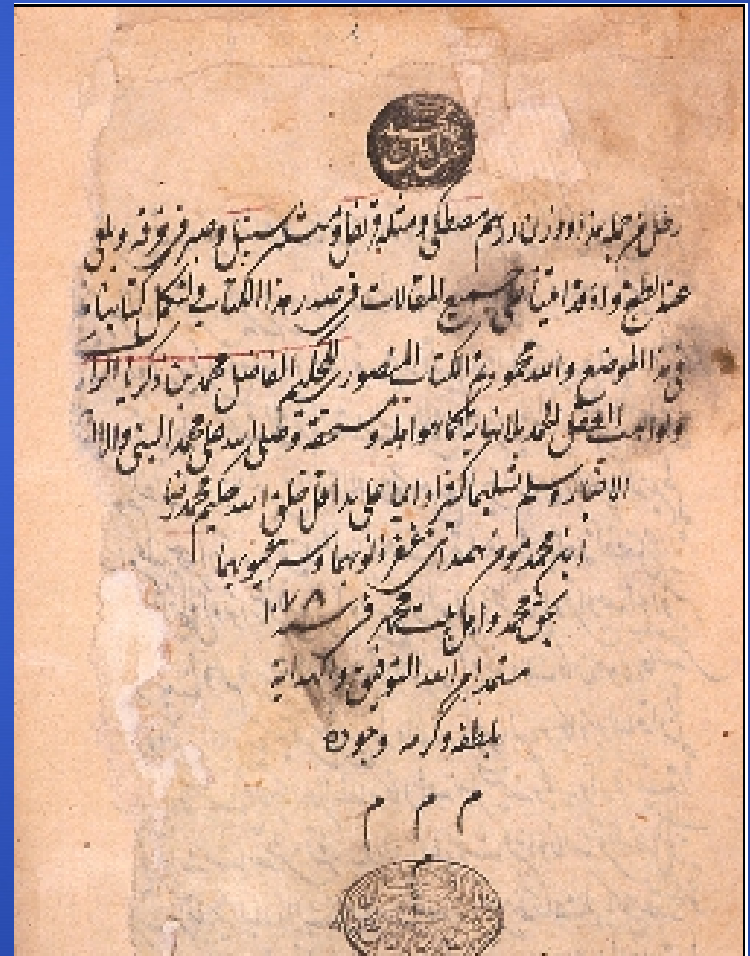 رطل خمر جيد يذاب وزن درهم مصطكى ومثله قرنفل ومثله سنبل ويصير في خرقة ويلقى
عند الطبخ واذ قد اتينا على جميع المقالات في صدر هذا الكتاب فلنكمل كتابنا
في هذا الموضع والله محمود تم الكتاب المنصوري للحكيم الفاضل محمد بن زكريا الرازي
ولواهب العقل الحمد بلا نهاية كما هو اهله ومستحقه وصلى الله على محمد النبي واله
الاخيار وسلم تسليما كثيرا دايما على يد اقل خلق الله حكيم محمد رضا
ابن محمد مومن همداني غفر ذنوبهما وستر عيوبهما
بحق محمد واهل بيت محمد في سنه ١٠٧٨
مستمدا من الله التوفيق والهداية
بلطفه وكرمه وجوده
م م م